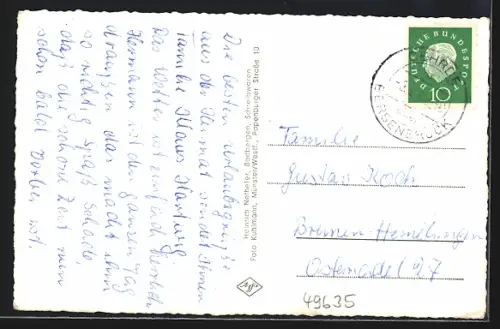 Die besten Urlaubsgrüße
aus der Heimat sendet Ihnen
Familie Klaus Hartung
Das Wetter ist einfach herrlich
Hermann ist den ganzen Tag
draussen das macht ihm
so richtig Spaß Schade
daß die schöne Zeit nun
schon bald vorbei ist.
Heinrich Netheler, Badbergen, Schreibwaren
Foto Kuhlmann, Münster/Westf., Papenburger Straße 10
Agfa
DEUTSCHE BUNDESPOST
10
BERSENBRÜCK
Familie
Gustav Koch
Bremen-Hemelingen
27
49635